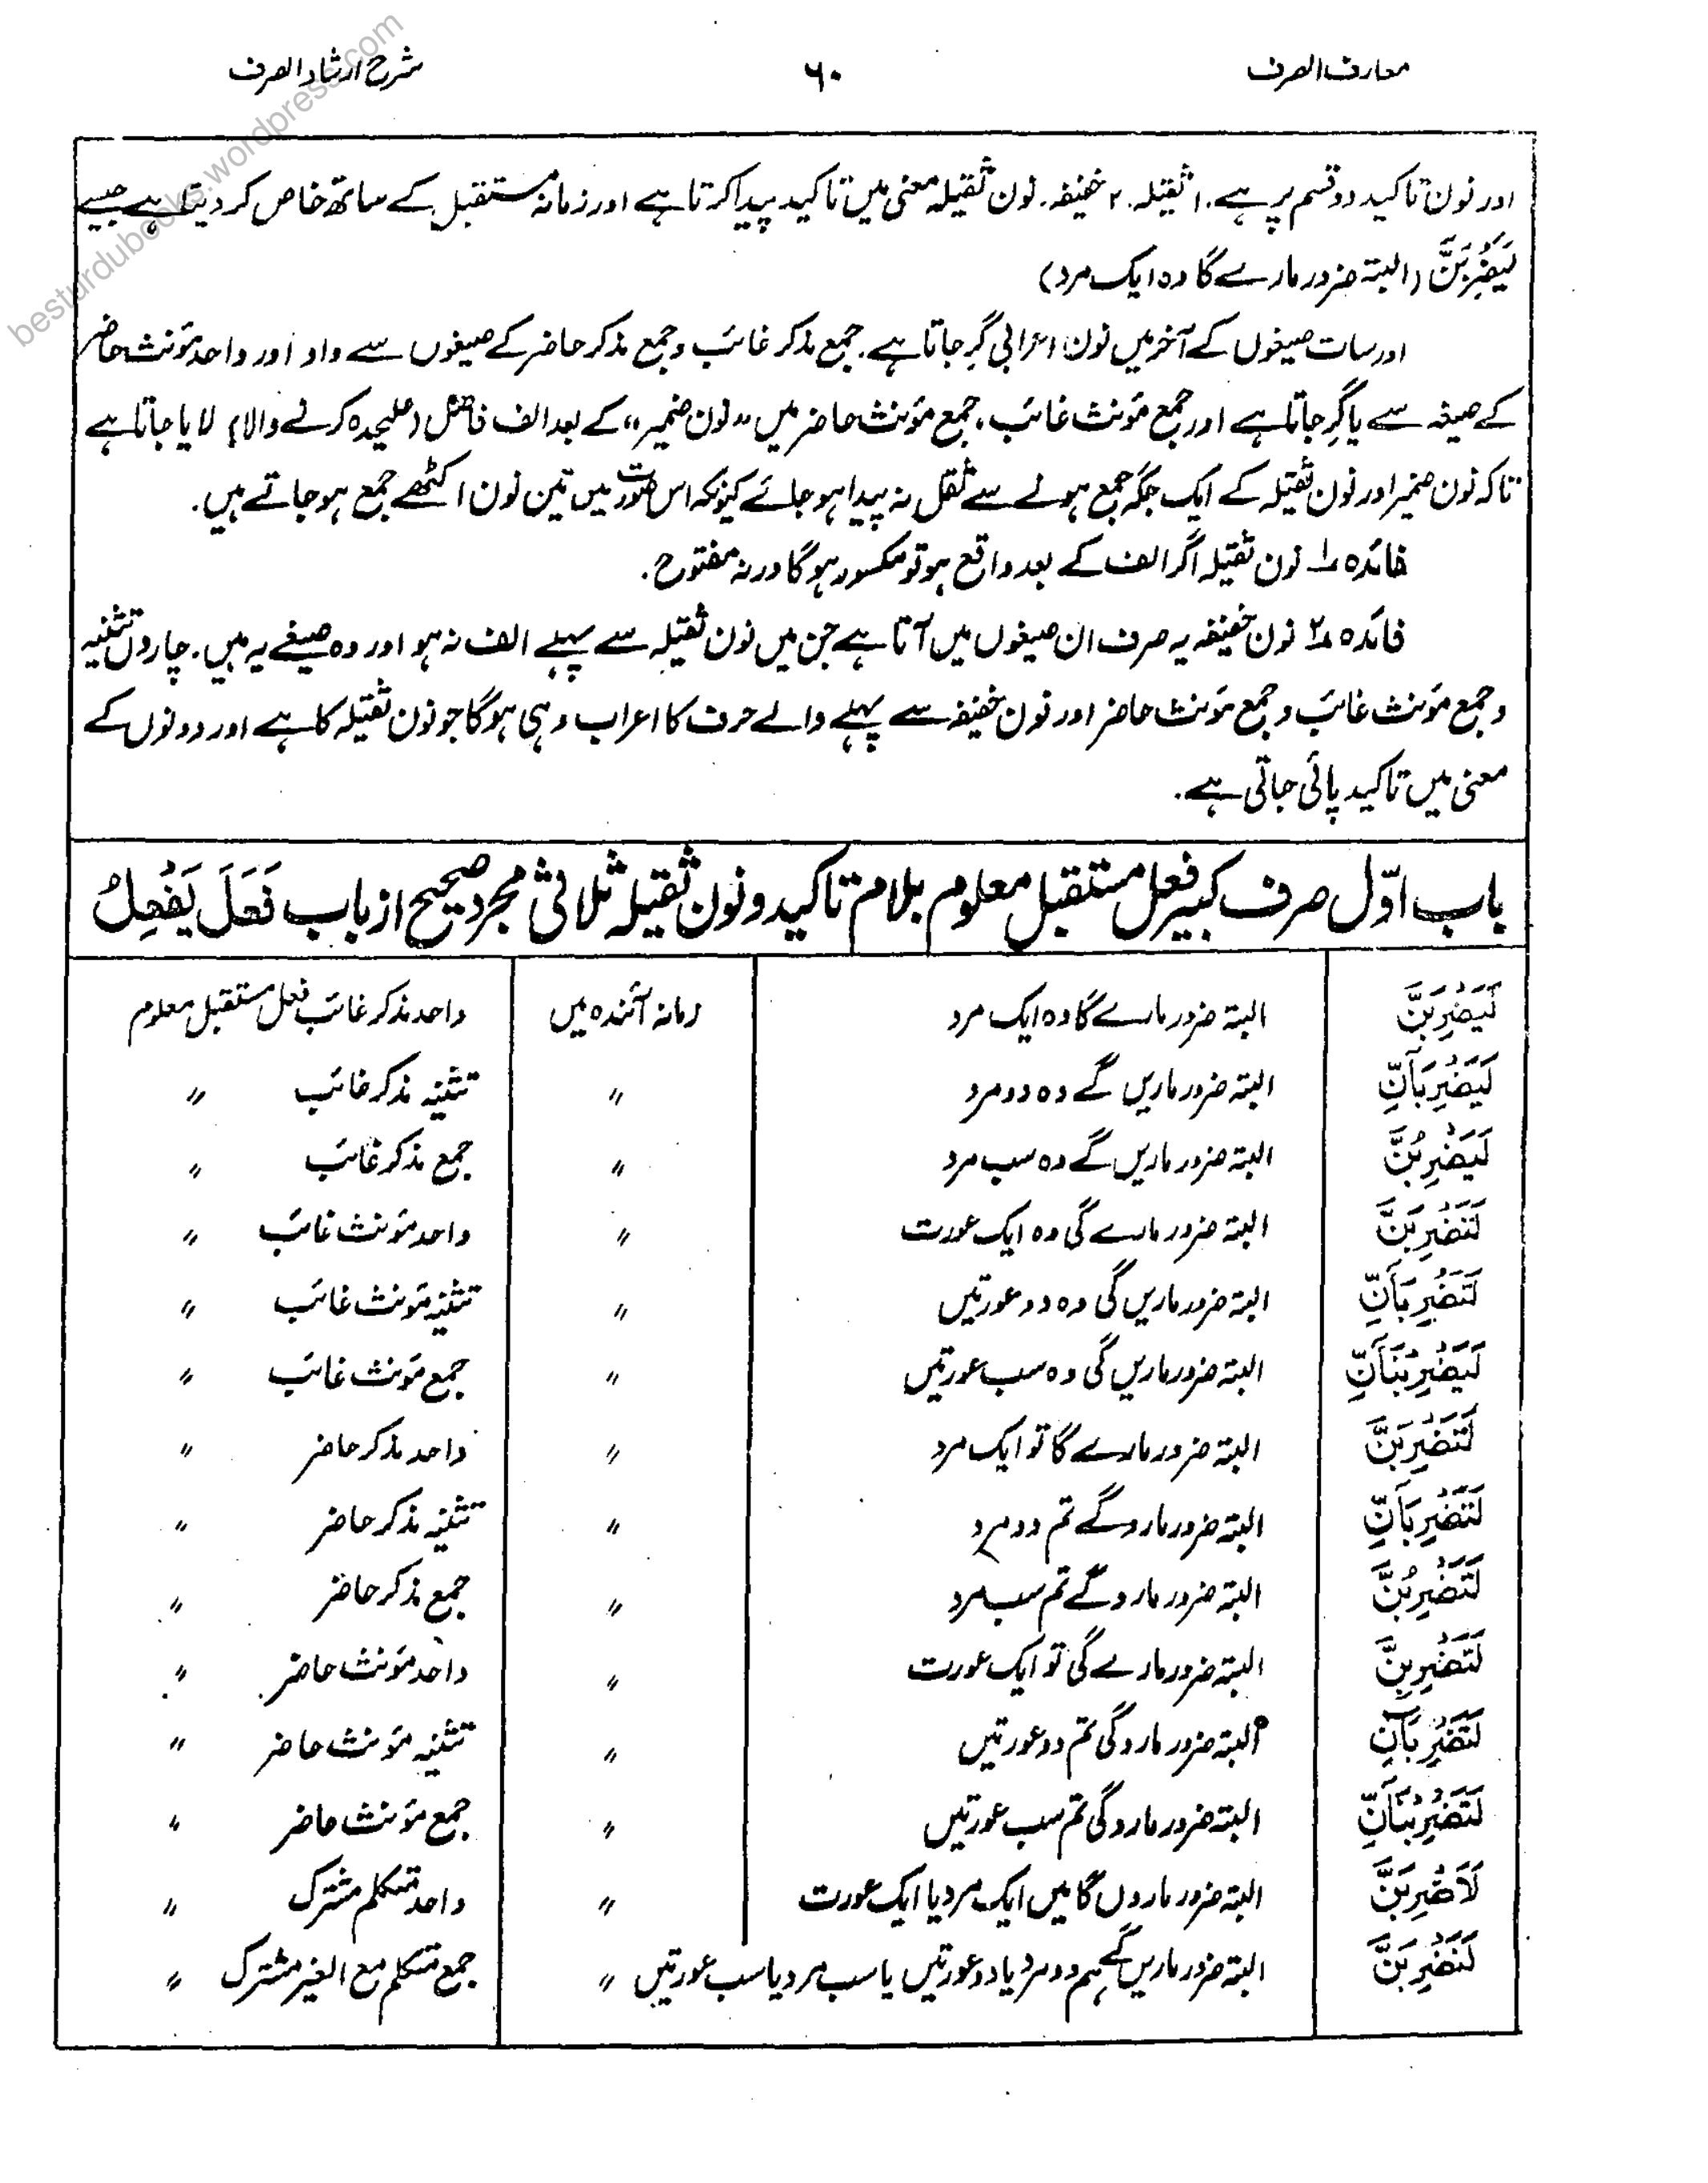 معارف الصرف
۶۰
شرح ارشاد الصرف
besturdubooks.wordpress.com
اور نون تاکید دو قسم پر ہے۔ ۱ ثقیلہ۔ ۲ خفیفہ۔ نون ثقیلہ معنی میں تاکید پیدا کرتا ہے اور زمانہ مستقبل کے ساتھ خاص کر دیتا ہے جیسے
لَیَضْرِبَنَّ (البتہ ضرور مارے گا وہ ایک مرد)
اور سات صیغوں کے آخر میں نون اعرابی گِر جاتا ہے۔ جمع مذکر غائب و جمع مذکر حاضر کے صیغوں سے واو اور واحد مؤنث حاضر
کے صیغہ سے یا گِر جاتا ہے اور جمع مؤنث غائب، جمع مؤنث حاضر میں "نون ضمیر" کے بعد الف فاصل (علیحدہ کرنے والا) لایا جاتا ہے
تاکہ نون ضمیر اور نون ثقیلہ کے ایک جگہ جمع ہونے سے ثقل نہ پیدا ہو جائے کیونکہ اس صورت میں تین نون اکٹھے جمع ہو جاتے ہیں۔
فائدہ ۱ نون ثقیلہ اگر الف کے بعد واقع ہو تو مکسور ہوگا ورنہ مفتوح۔
فائدہ ۲ نون خفیفہ یہ صرف ان صیغوں میں آتا ہے جن میں نون ثقیلہ سے پہلے الف نہ ہو اور وہ صیغے یہ ہیں۔ چاروں تثنیہ
و جمع مؤنث غائب و جمع مؤنث حاضر اور نون خفیفہ سے پہلے والے حرف کا اعراب وہی ہوگا جو نون ثقیلہ کا ہے اور دونوں کے
معنی میں تاکید پائی جاتی ہے۔
باب اوّل صرف کبیر فعل مستقبل معلوم بلام تاکید و نون ثقیلہ ثلاثی مجرد صحیح از باب فَعَلَ یَفْعِلُ
لَیَضْرِبَنَّ البتہ ضرور مارے گا وہ ایک مرد زمانہ آئندہ میں واحد مذکر غائب فعل مستقبل معلوم
لَیَضْرِبَآنِّ البتہ ضرور ماریں گے وہ دو مرد 〃 تثنیہ مذکر غائب 〃
لَیَضْرِبُنَّ البتہ ضرور ماریں گے وہ سب مرد 〃 جمع مذکر غائب 〃
لَتَضْرِبَنَّ البتہ ضرور مارے گی وہ ایک عورت 〃 واحد مؤنث غائب 〃
لَتَضْرِبَآنِّ البتہ ضرور ماریں گی وہ دو عورتیں 〃 تثنیہ مؤنث غائب 〃
لَیَضْرِبْنَآنِّ البتہ ضرور ماریں گی وہ سب عورتیں 〃 جمع مؤنث غائب 〃
لَتَضْرِبَنَّ البتہ ضرور مارے گا تو ایک مرد 〃 واحد مذکر حاضر 〃
لَتَضْرِبَآنِّ البتہ ضرور مارو گے تم دو مرد 〃 تثنیہ مذکر حاضر 〃
لَتَضْرِبُنَّ البتہ ضرور مارو گے تم سب مرد 〃 جمع مذکر حاضر 〃
لَتَضْرِبِنَّ البتہ ضرور مارے گی تو ایک عورت 〃 واحد مؤنث حاضر 〃
لَتَضْرِبَآنِّ البتہ ضرور مارو گی تم دو عورتیں 〃 تثنیہ مؤنث حاضر 〃
لَتَضْرِبْنَآنِّ البتہ ضرور مارو گی تم سب عورتیں 〃 جمع مؤنث حاضر 〃
لَاَضْرِبَنَّ البتہ ضرور ماروں گا میں ایک مرد یا ایک عورت 〃 واحد متکلم مشترک 〃
لَنَضْرِبَنَّ البتہ ضرور ماریں گے ہم دو مرد یا دو عورتیں یا سب مرد یا سب عورتیں 〃 جمع متکلم مع الغیر مشترک 〃